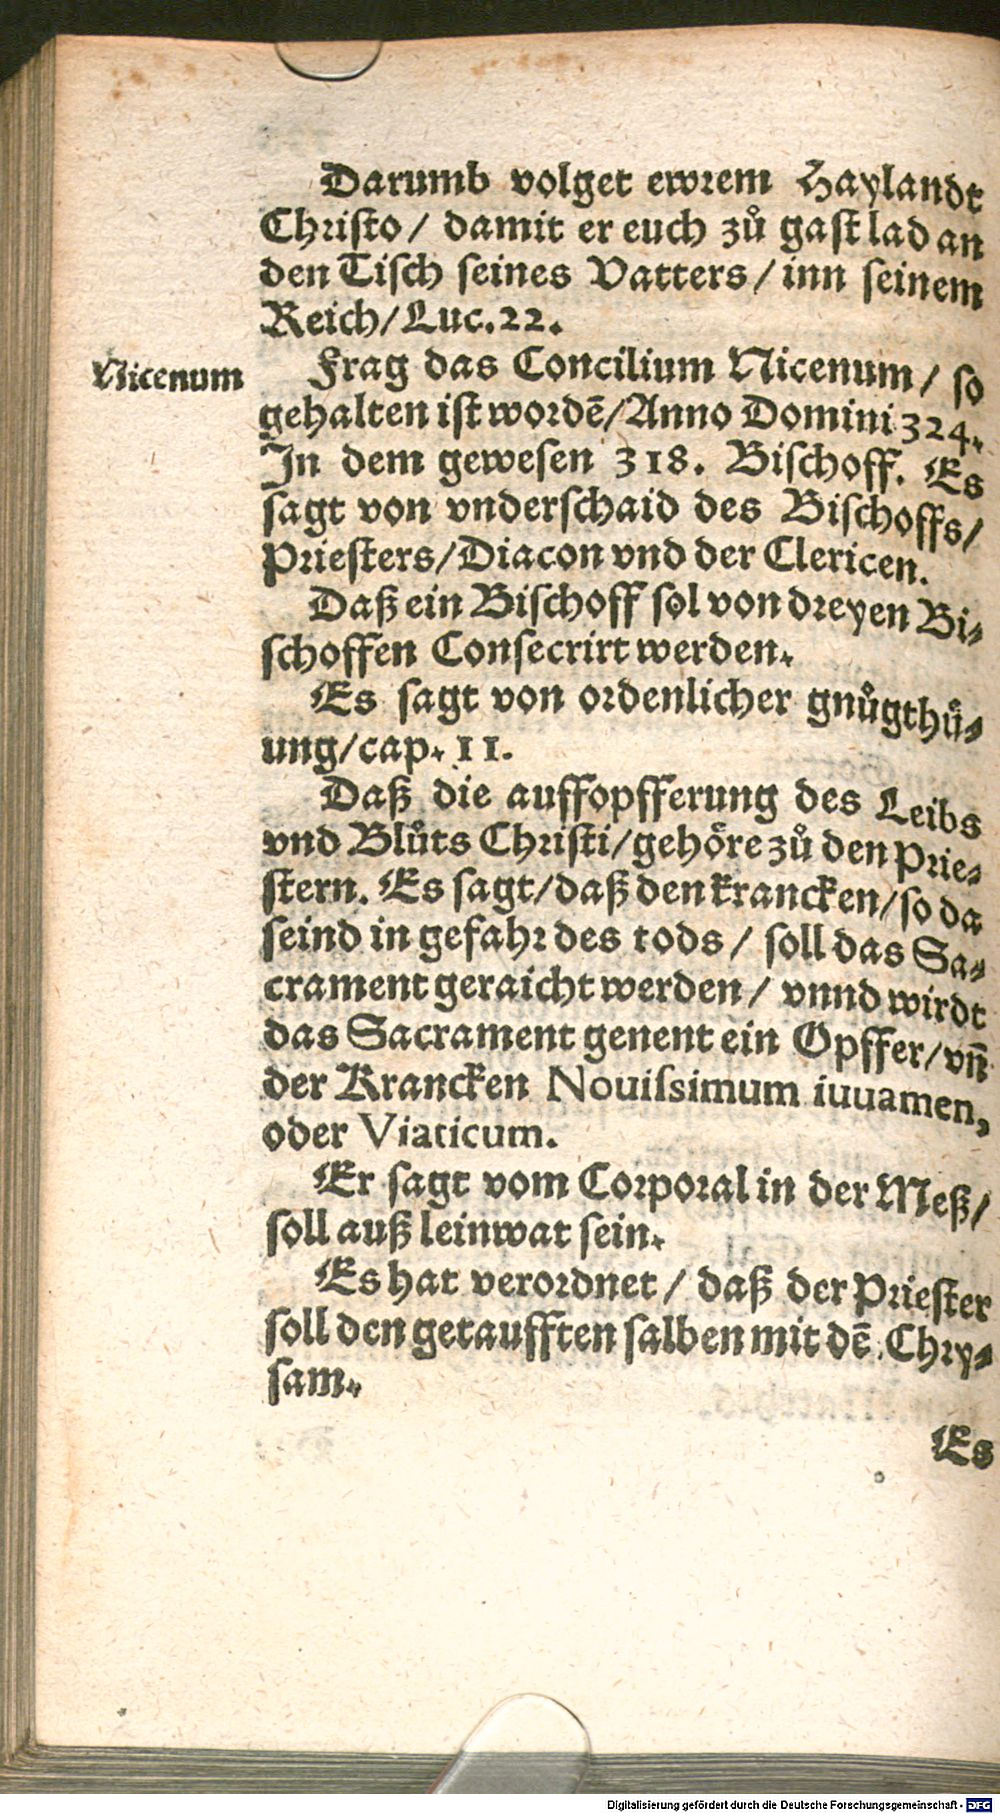 Darumb volget ewrem Haylandt
Christo / damit er euch zů gast lad an
den Tisch seines Vatters / inn seinem
Reich / Luc. 22.
Nicenum
Frag das Concilium Nicenum / so
gehalten ist wordẽ / Anno Domini 324.
In dem gewesen 318. Bischoff. Es
sagt von vnderschaid des Bischoffs /
Priesters / Diacon vnd der Clericen.
Daß ein Bischoff sol von dreyen Bi-
schoffen Consecrirt werden.
Es sagt von ordenlicher gnůgthů-
ung / cap. 11.
Daß die auffopfferung des Leibs
vnd Blůts Christi / gehöre zů den Prie-
stern. Es sagt / daß den krancken / so da
seind in gefahr des tods / soll das Sa-
crament geraicht werden / vnnd wirdt
das Sacrament genent ein Opffer / vñ
der Krancken Nouissimum iuuamen,
oder Viaticum.
Er sagt vom Corporal in der Meß /
soll auß leinwat sein.
Es hat verordnet / daß der Priester
soll den getaufften salben mit dẽ Chry-
sam.
Es
Digitalisierung gefördert durch die Deutsche Forschungsgemeinschaft - DFG